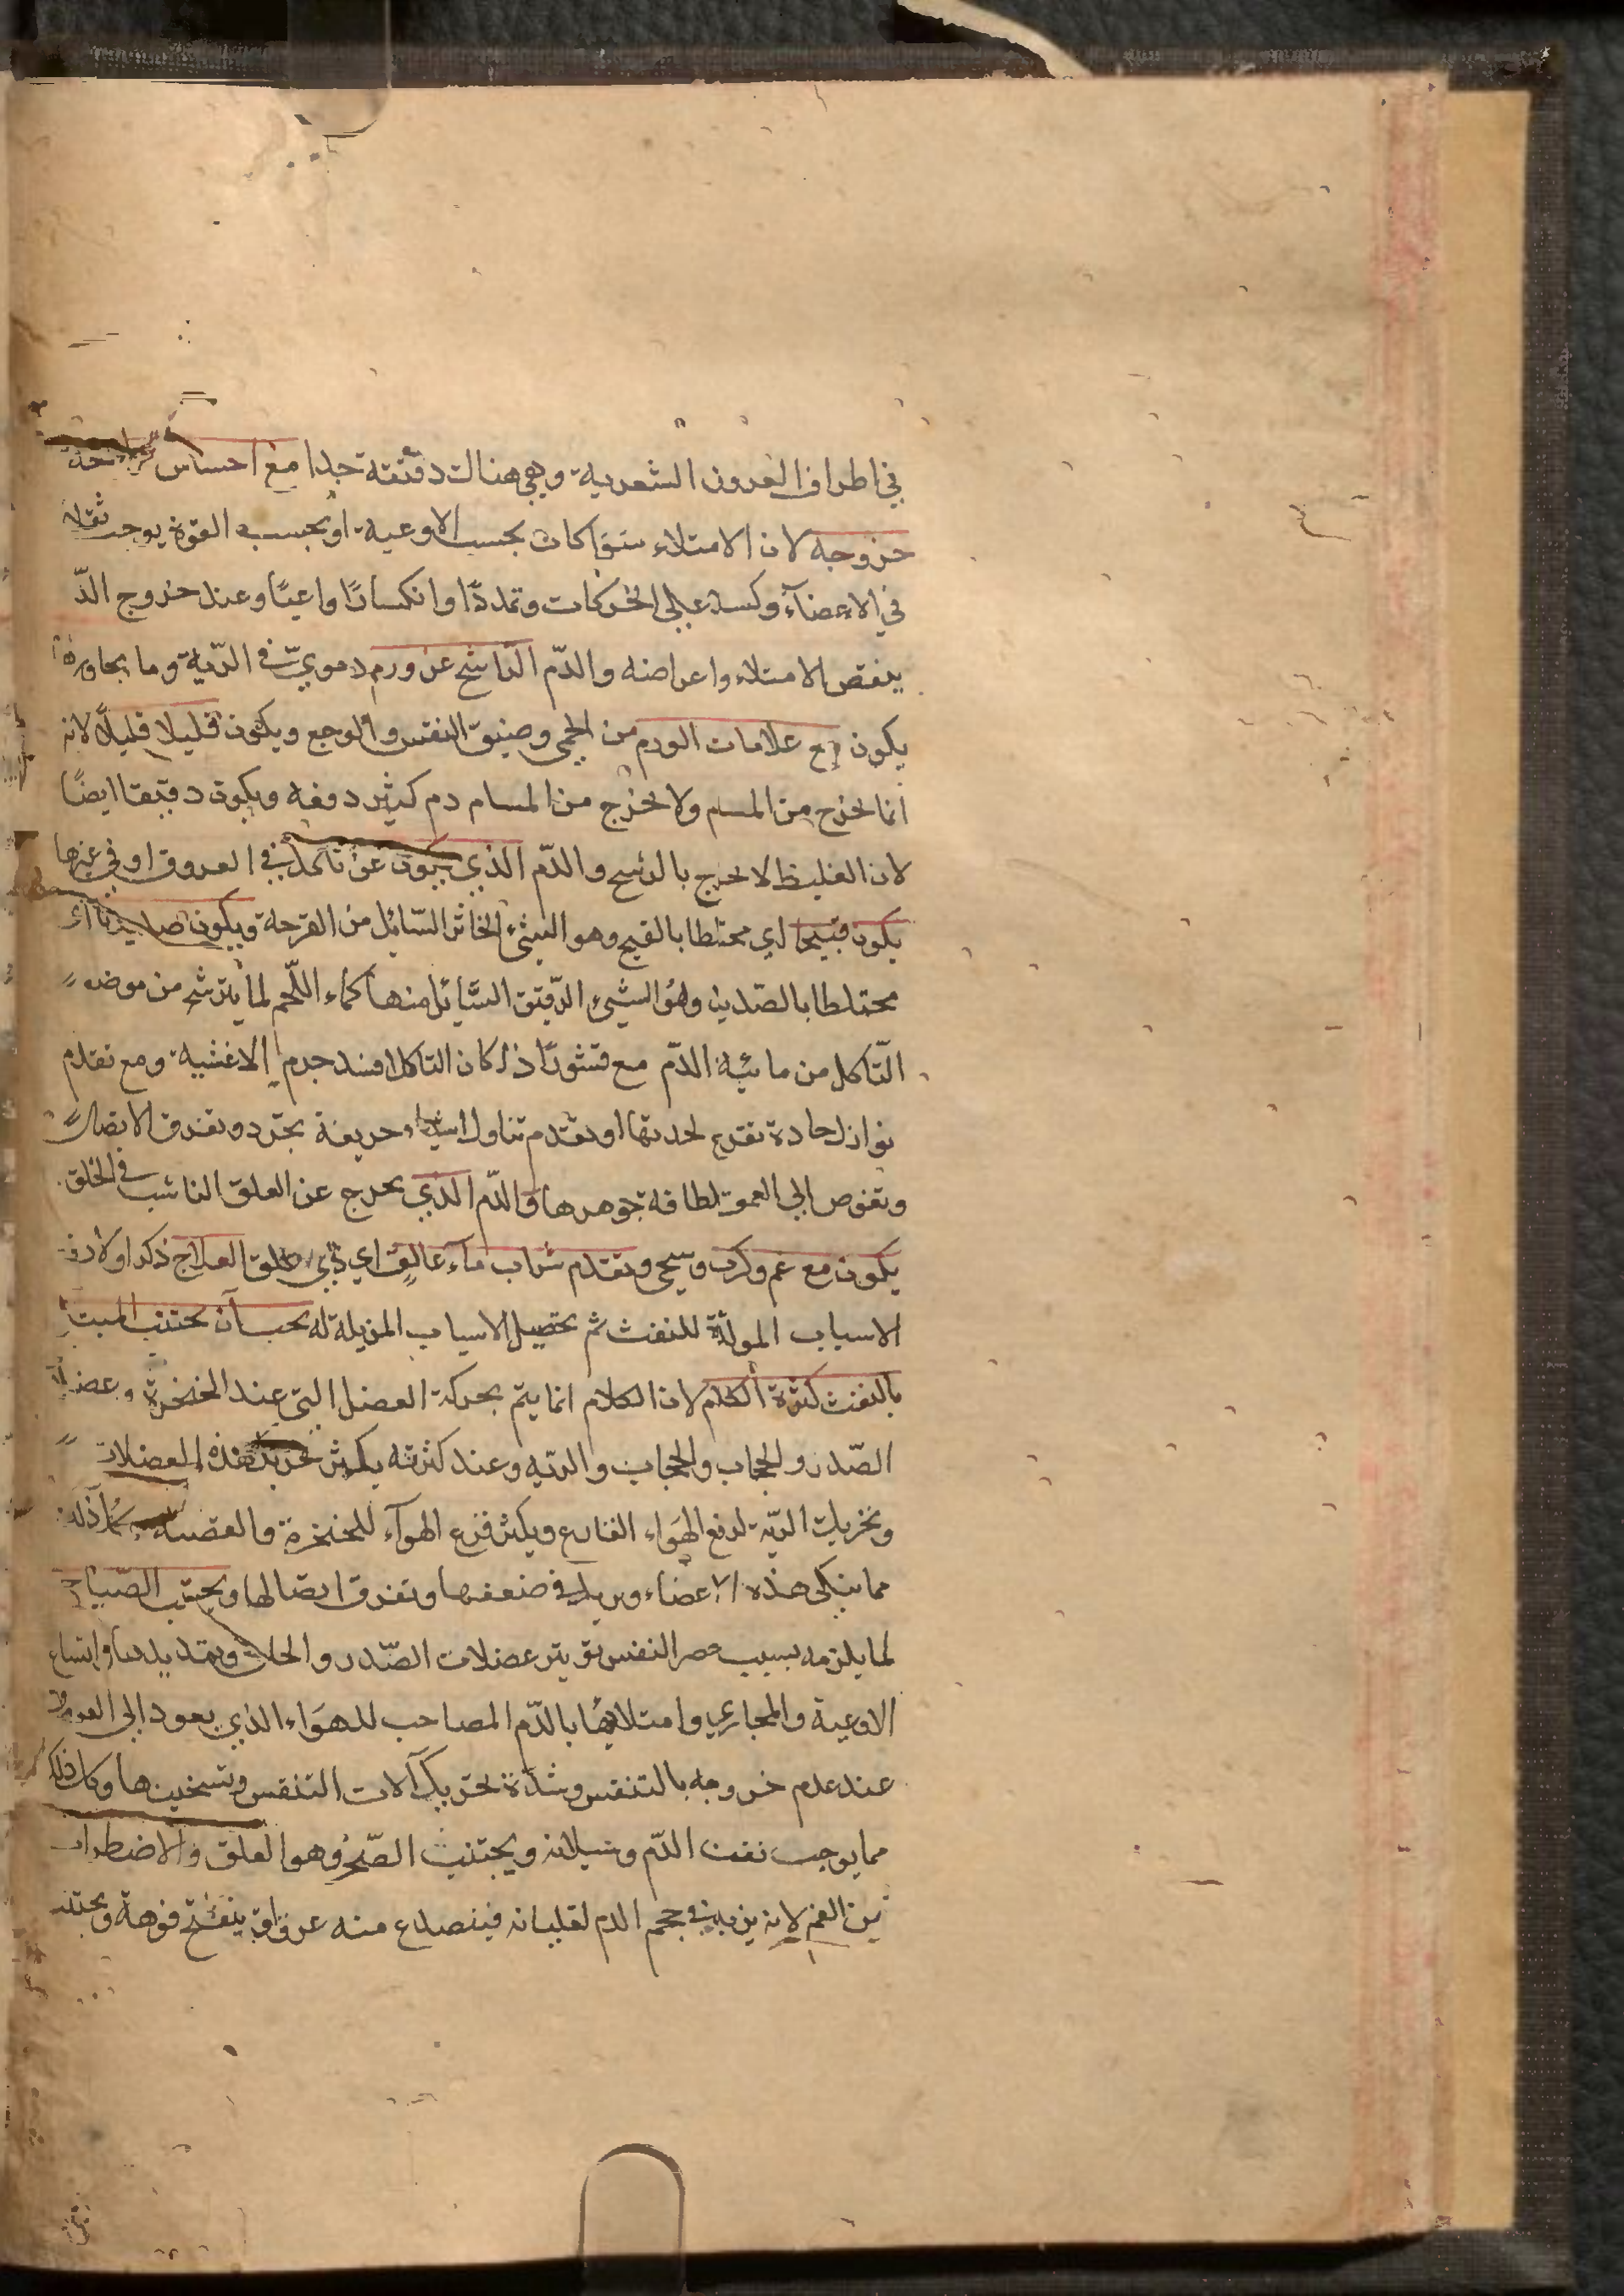 في اطراف العروق الشعرية وهي هناك دقيقة جدا مع احساس براحة
خروجه لان الامتلاء سوا كان بحسب الاوعية او بحسب القوة يوجب ثقلا
في الاعضآء وكسلا علي الحركات وتمددًا وانكسارًا واعيًا وعند خروج الدّم
ينقص الامتلاء واعراضه والدّم الناشي عن ورم دمويّ في الرّية وما يجاورها
يكون مع علامات الورم من الحمى وضيق النفس والوجع ويكون قليلا قليلًا لانه
انما يخرج من المسام ولا يخرج من المسام دم كثير دفعه ويكون دقيقا ايضًا
لان الغليظ لا يخرج بالرشح والدّم الذي يكون عن تاكل في العروق او في غيرها
يكون قيحيا اي مختلطا بالقيح وهو الشئ الخاثر السّائل من القرحة ويكون صديديا اي
مختلطا بالصّديد وهُو الشيء الرّقيق السَّائل منها كماء اللّحم لما يترشح من موضع
التّاكل من مائية الدّم مع قشور اذا كان التاكل افسد جرم الاغشية ومع تقدم
نوازل حادة تقرح لحدتها او تقدم تناول اشياء حريفة تجرد وتفرق الاتصال
وتغوص الي العمق لطافة جوهرها والدّم الذي يخرج عن العلق الناشب في الحلق
يكون مع غم وكرب وسحج وتقدم شراب مآء عالق اي ذي علق العلاج ذكر اولا دفع
الاسباب المولدة للنفث ثم تحصيل الاسباب المزيلة له يجب آن يجتنب المبتلي
بالنفث كثرة الكلام لان الكلام انما يتم بحركة العضل التي عند الحنجرة وعضل
الصّدر والحجاب والحجاب والرّيه وعند كثرته يكثر تحريك هذه العضلات
وتحريك الريّة لدفع الهَواء القارع ويكثر قرع الهوآء للحنجرة والقصبة وكل ذلك
مما ينكى هذه الاعضاء ويزيد في ضعفها وتفرق اتصالها ويجتنب الصّياح
لما يلزمه بسبب حصر النفس توتير عضلات الصّدر والحلق وتمديدها واتساع
الاوعية والمجاري وامتلائها بالدّم المصاحب للهَواء الذي يعود الى العروق
عند عدم خروجه بالتنفس وشدّة تحريك آلات التنفس وتسخينها وكل ذلك
مما يوجب نفث الدّم وسيلانه ويجتنب الضّجر وهو القلق والاضطراب
من الغم لانه يزيد في حجم الدم لغليانه فينصدع منه عرق او ينفتح فوهة ويجتنب